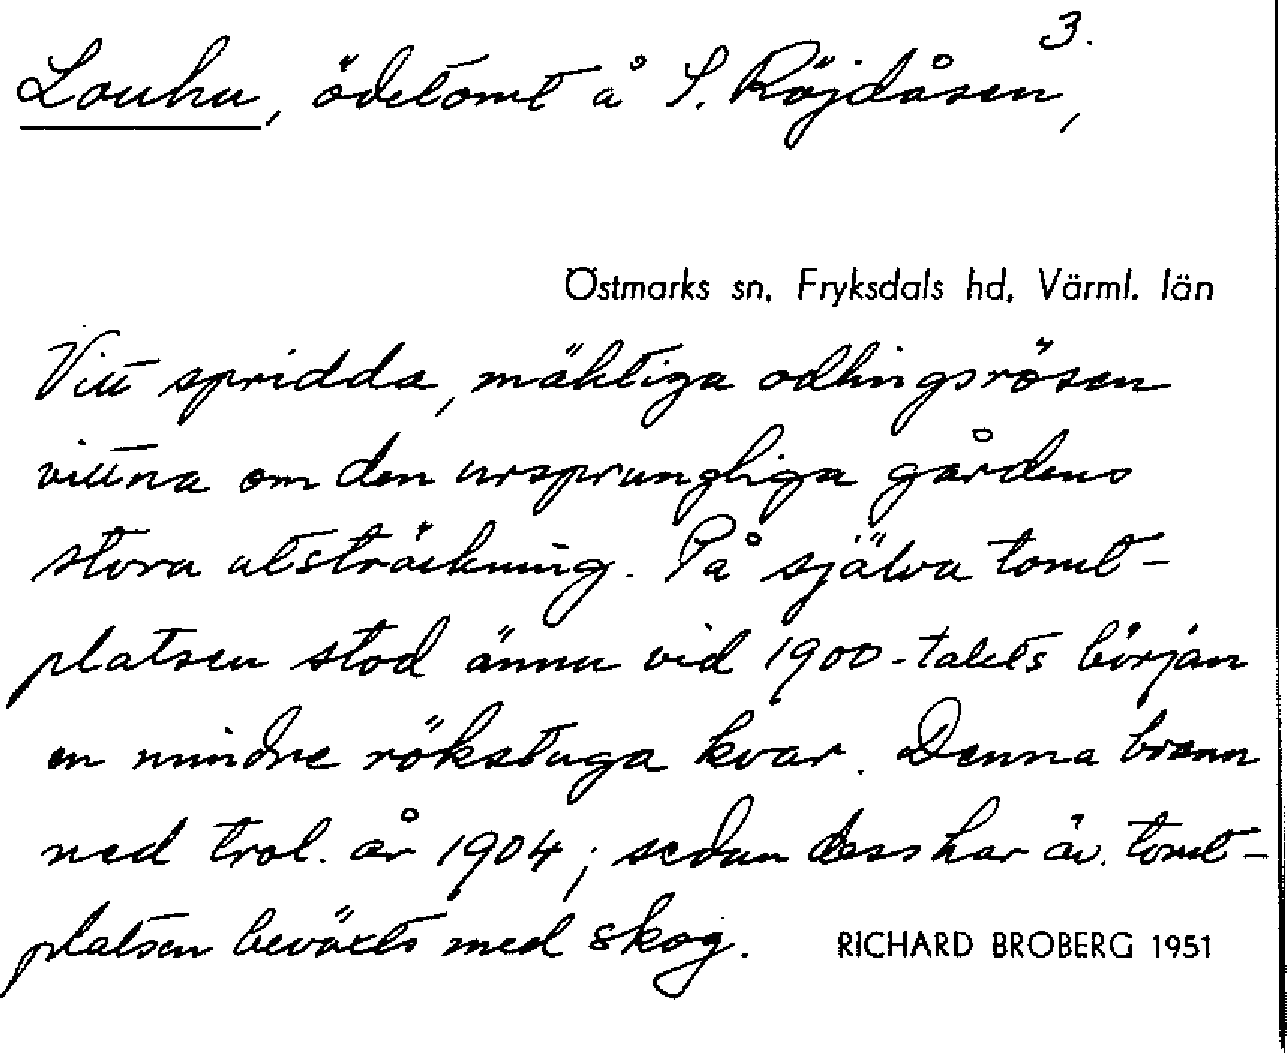 3.
Louhu, ödetomt å S. Röjdåsen,
Östmarks sn, Fryksdals hd, Värml. län
Vitt spridda, mäktiga odlingsrösen
vittna om den ursprungliga gårdens
stora utsträckning. På själva tomt-
platsen stod ännu vid 1900-talets början
en mindre rökstuga kvar. Denna brann
ned trol. år 1904; sedan dess har äv. tomt-
platsen beväxts med skog. RICHARD BROBERG 1951